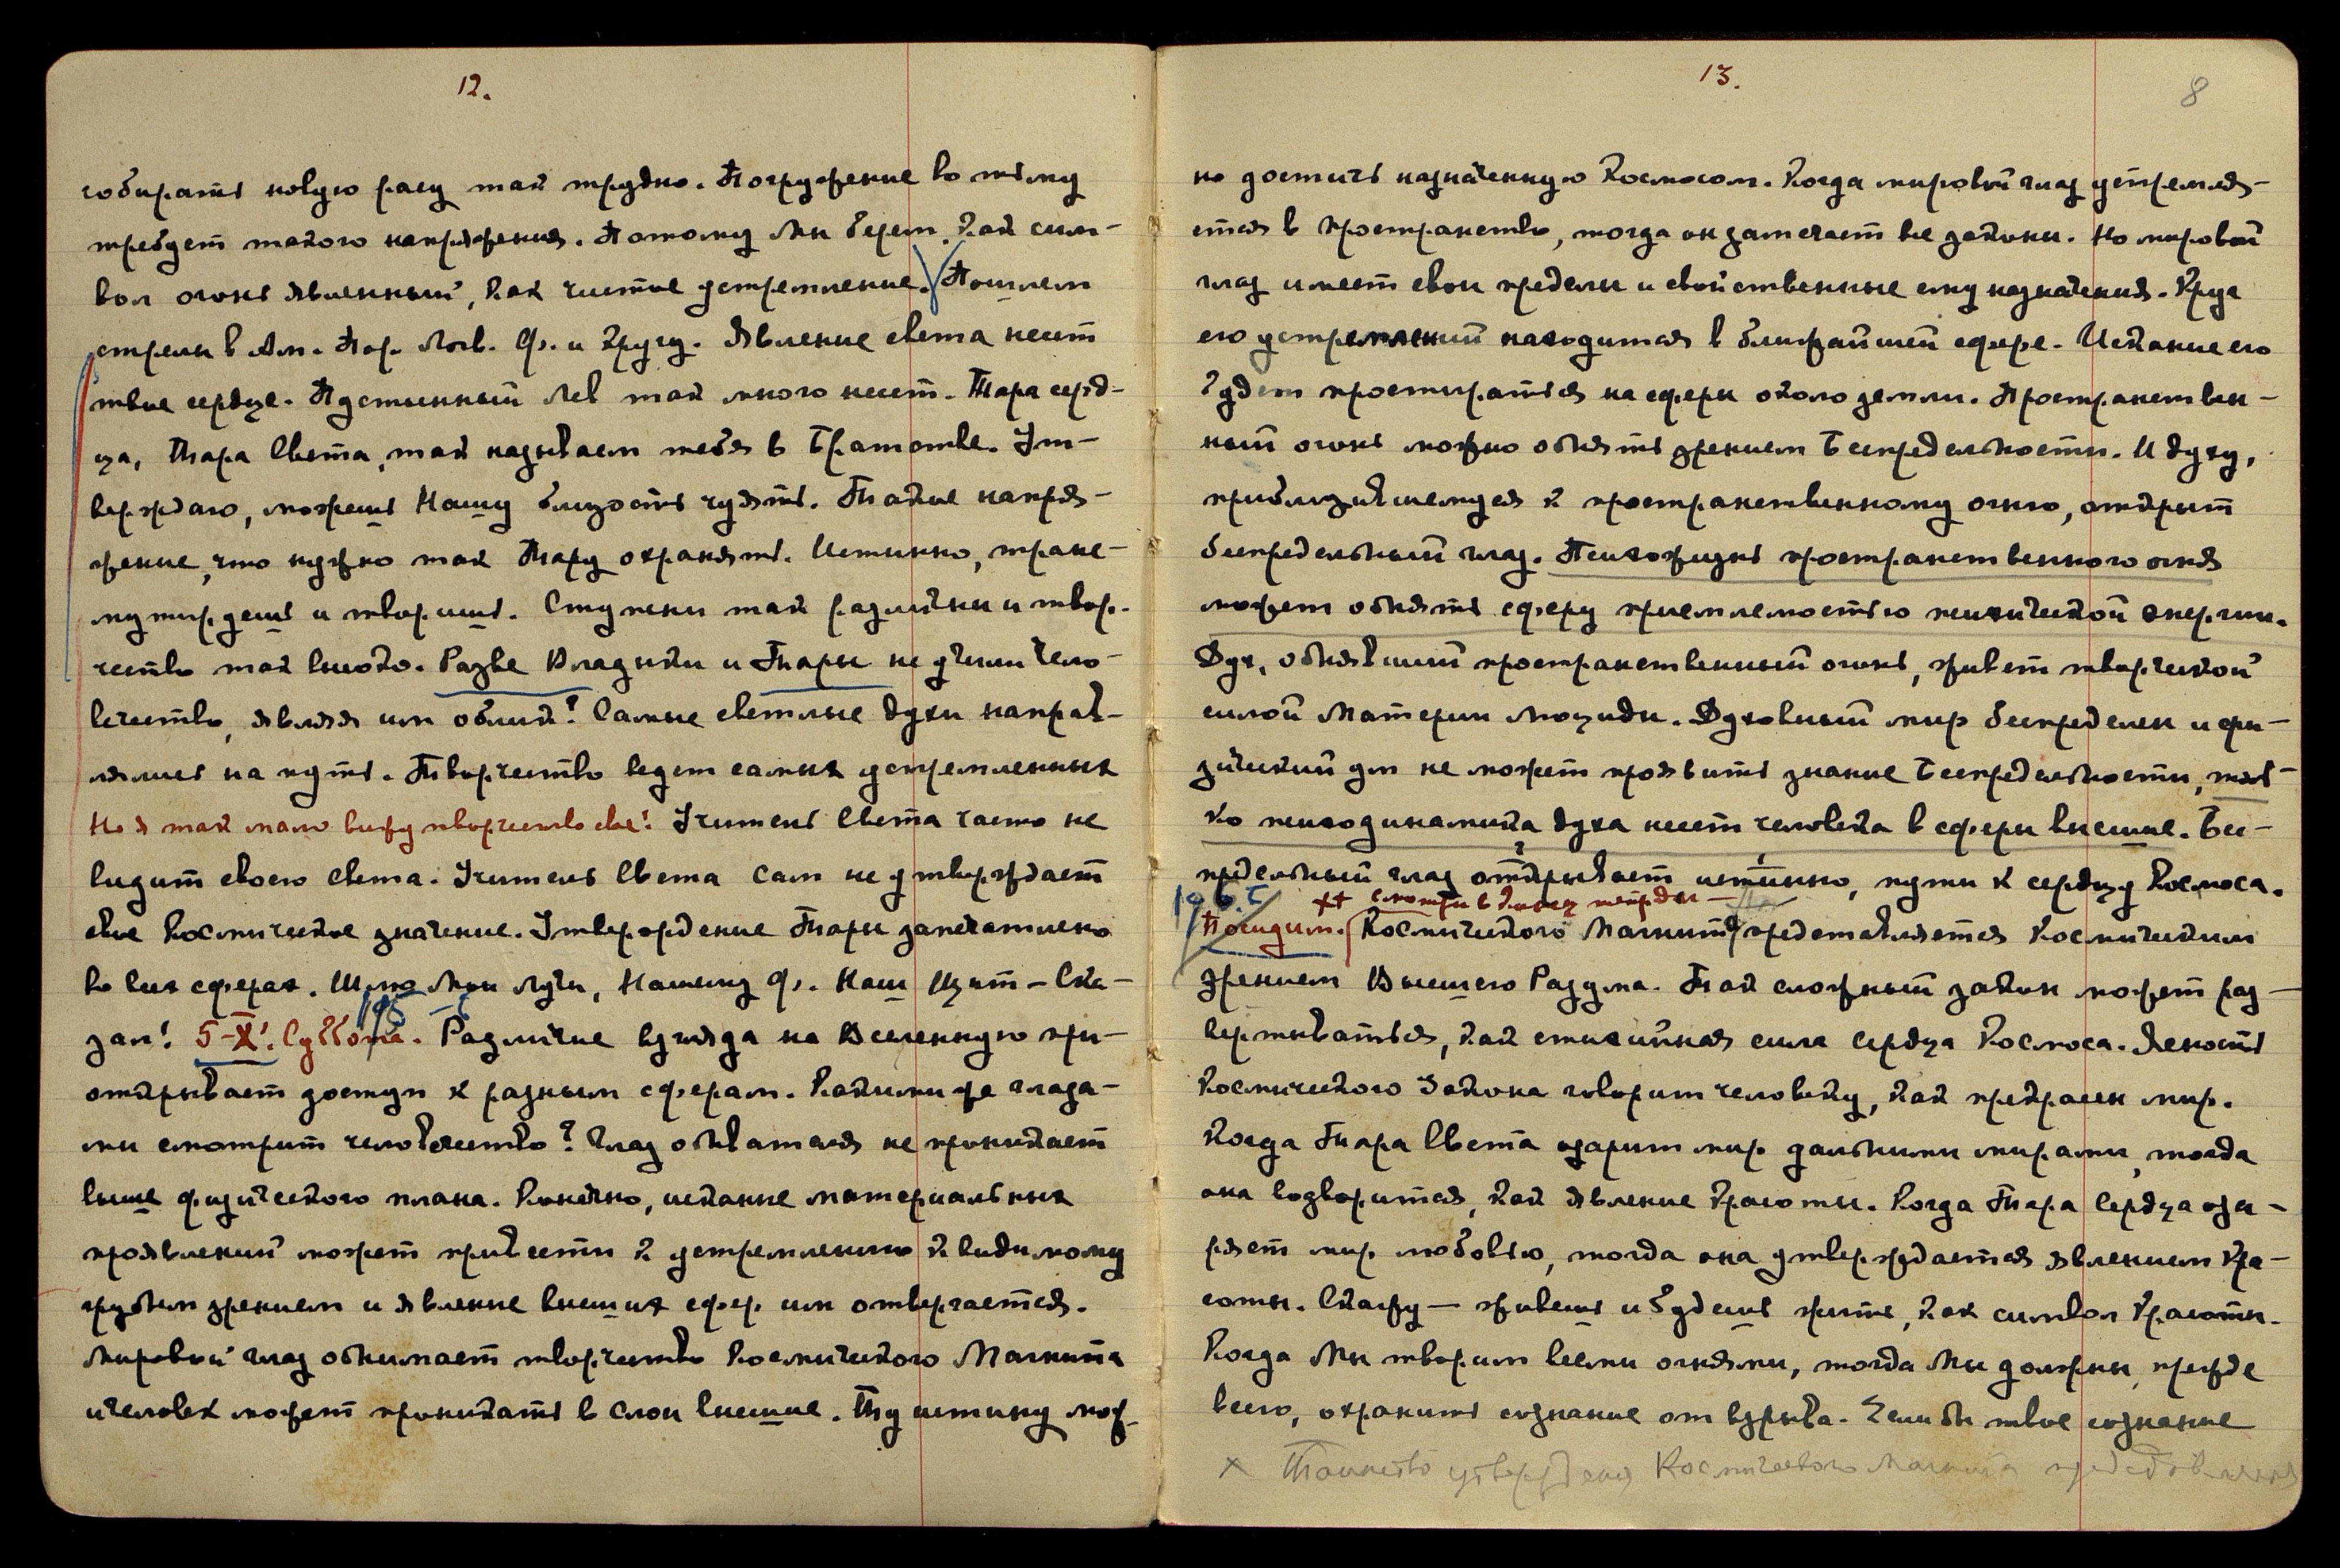 12.
собирать новую расу так трудно. Погружение во тьму
требует такого напряжения. Потому Мы берем, как сим-
вол огонь явленный, как чистое устремление. Пошлем
стрелы в Ам. Пор. Лог. Ф. и другу. Явление света несет
твое сердце. Пустынный Лев так много несет. Тара серд-
ца, Тара Света, так называем тебя в Братстве. Ут-
верждаю, можешь Нашу близость чуять. Такое напря-
жение, что нужно так Тару охранять. Истинно, транс-
мутируешь и творишь. Ступени так различны и твор-
чество так высоко. Разве Владыки и Тары не учили чело-
вечество, являя им облик? Самые светлые духи направ-
лялись на путь. Творчество ведет самых устремленных
Но я так мало вижу творчество свое! Учитель Света часто не
видит своего света. Учитель Света сам не утверждает
свое Космическое значение. Утверждение Тары запечатлено
во всех сферах. Шлю Мои лучи, Нашему Ф. Наш Щит – Ска-
зал! 5-X! Суббота. Различие взгляда на Вселенную при-
открывает доступ к разным сферам. Какими же глаза-
ми смотрит человечество? Глаз обывателя не проникает
выше физического плана. Конечно, искание материальных
проявлений может привести к устремлению к видимому
грубым зрением и явление высших сфер им отвергается.
Мировой глаз обнимает творчество Космического Магнита
и человек может проникать в слои высшие. Ту истину мож-
13.
8
но достичь назначенную Космосом. Когда мировой глаз устремля-
ется в пространство, тогда он замечает все законы. Но мировой
глаз имеет свои пределы и свойственные ему назначения. Круг
его устремлений находится в ближайшей сфере. Искание его
будет простираться на сферы около земли. Пространствен-
ный огонь можно объять зрением Беспредельности. И духу,
приблизившемуся к пространственному огню, открыт
беспредельный глаз. Психожизнь пространственного огня
может объять сферу приемлемостью психической энергии.
Дух, объявший пространственный огонь, живет творческой
силой Материи Люциды. Духовный мир беспределен и фи-
зический ум не может проявить знание Беспредельности, толь-
ко психодинамика духа несет человека в сферы высшие. Бес-
предельный глаз открывает истинно, пути к сердцу Космоса.
смотри в конец тетради —
Космического Магнита представляется Космическим
зрением Высшего Разума. Такой сложный закон может раз-
вертываться, как стихийная сила Сердца Космоса. Ясность
Космического Закона говорит человеку, как прекрасен мир.
Когда Тара Света озарит мир дальними мирами, тогда
она водворится, как явление Красоты. Когда Тара Сердца оза-
ряет мир любовью, тогда она утверждается явлением Кра-
соты. Скажу — живешь и будешь жить, как символ Красоты.
Когда Мы творим всеми огнями, тогда Мы должны, прежде
всего, охранить сознание от взрыва. Если бы твое сознание
× Таинство утверждения Космического Магнита представляется